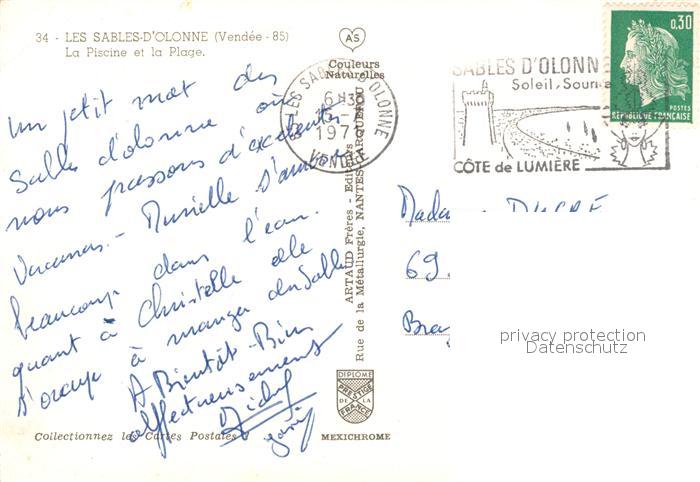 34 - LES SABLES-D'OLONNE (Vendée - 85)
La Piscine et la Plage.
Un petit mot des
Sables d'olonne où
nous passons d'excellentes
Vacances. - Murielle s'amuse
beaucoup dans l'eau.
quant à Christelle elle
s'occupe à manger du Sable
A Bientôt - Bien
affectueusement
Collectionnez les Cartes Postales
AS
Couleurs
Naturelles
ARTAUD Frères - Editeurs
Rue de la Métallurgie, NANTES
DIPLOME
PRESTIGE
DE LA
FRANCE
MEXICHROME
LES SABLES D'OLONNE
VENDÉE
SABLES D'OLONNE
Soleil,
CÔTE de LUMIÈRE
0,30
POSTES
REPUBLIQUE FRANÇAISE
69.
privacy protection
Datenschutz